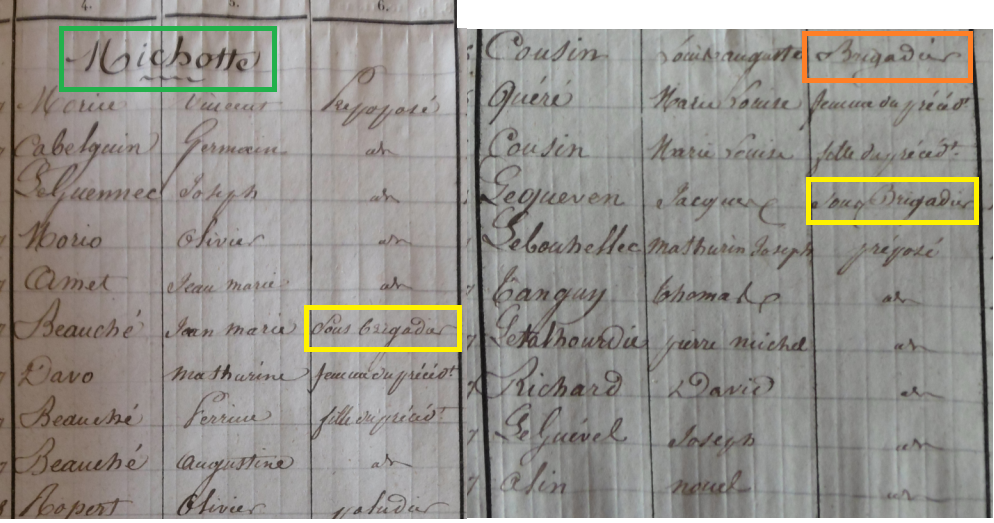 4. 5. 6.
Michotte
Morice Vincent Préposé
Cabelguin Germain do
LeGuennec Joseph do
Morio Olivier do
Amet Jean marie do
Beauché Jean marie Sous brigadier
Davo mathurine femme du précédt
Beauché Perrine fille du précédt
Beauché augustine do
Ropert Olivier paludier
Cousin Louis auguste Brigadier
Quéré Marie Louise femme du précédt
Cousin Marie Louise fille du précédt
Legueven Jacques Sous Brigadier
Lebouhellec mathurin Joseph préposé
Tanguy thomas do
Letalhourdic pierre michel do
Richard David do
LeGuével Joseph do
alin nouel do